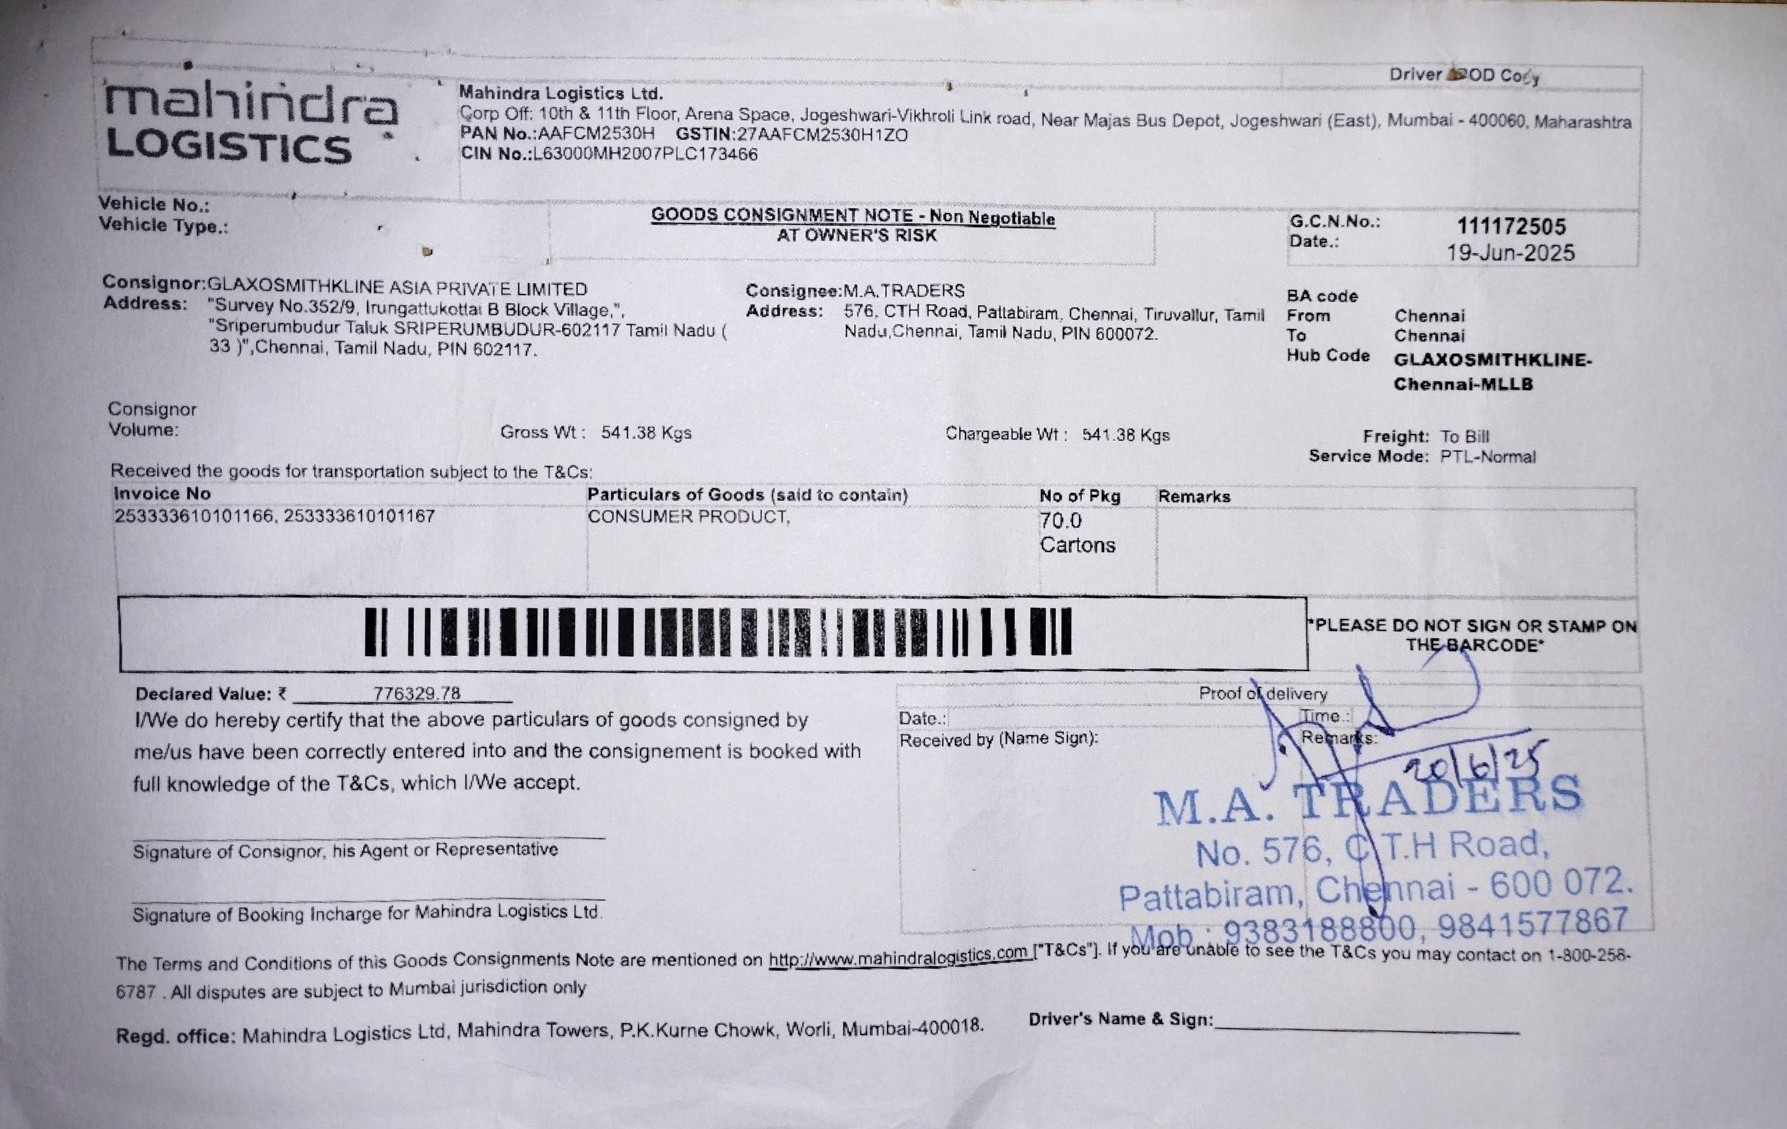 Driver POD Copy
mahindra
LOGISTICS
Mahindra Logistics Ltd.
Corp Off: 10th & 11th Floor, Arena Space, Jogeshwari-Vikhroli Link road, Near Majas Bus Depot, Jogeshwari (East), Mumbai - 400060, Maharashtra
PAN No.:AAFCM2530H GSTIN:27AAFCM2530H1ZO
CIN No.:L63000MH2007PLC173466
Vehicle No.:
Vehicle Type.:
GOODS CONSIGNMENT NOTE - Non Negotiable
AT OWNER'S RISK
G.C.N.No.: 111172505
Date.: 19-Jun-2025
Consignor:GLAXOSMITHKLINE ASIA PRIVATE LIMITED
Address: "Survey No.352/9, Irungattukottai B Block Village,",
"Sriperumbudur Taluk SRIPERUMBUDUR-602117 Tamil Nadu (
33 )",Chennai, Tamil Nadu, PIN 602117.
Consignee:M.A.TRADERS
Address: 576, CTH Road, Pattabiram, Chennai, Tiruvallur, Tamil
Nadu,Chennai, Tamil Nadu, PIN 600072.
BA code
From Chennai
To Chennai
Hub Code GLAXOSMITHKLINE-
Chennai-MLLB
Consignor
Volume:
Gross Wt : 541.38 Kgs
Chargeable Wt : 541.38 Kgs
Freight: To Bill
Service Mode: PTL-Normal
Received the goods for transportation subject to the T&Cs:
Invoice No Particulars of Goods (said to contain) No of Pkg Remarks
253333610101166, 253333610101167 CONSUMER PRODUCT, 70.0
Cartons
*PLEASE DO NOT SIGN OR STAMP ON
THE BARCODE*
Declared Value: ₹ 776329.78
I/We do hereby certify that the above particulars of goods consigned by
me/us have been correctly entered into and the consignement is booked with
full knowledge of the T&Cs, which I/We accept.
Signature of Consignor, his Agent or Representative
Signature of Booking Incharge for Mahindra Logistics Ltd.
Proof of delivery
Date.: Time.:
Received by (Name Sign): Remarks:
20/6/25
M.A. TRADERS
No. 576, C.T.H Road,
Pattabiram, Chennai - 600 072.
Mob : 9383188800, 9841577867
The Terms and Conditions of this Goods Consignments Note are mentioned on http://www.mahindralogistics.com ["T&Cs"]. If you are unable to see the T&Cs you may contact on 1-800-258-
6787 . All disputes are subject to Mumbai jurisdiction only
Regd. office: Mahindra Logistics Ltd, Mahindra Towers, P.K.Kurne Chowk, Worli, Mumbai-400018.
Driver's Name & Sign: